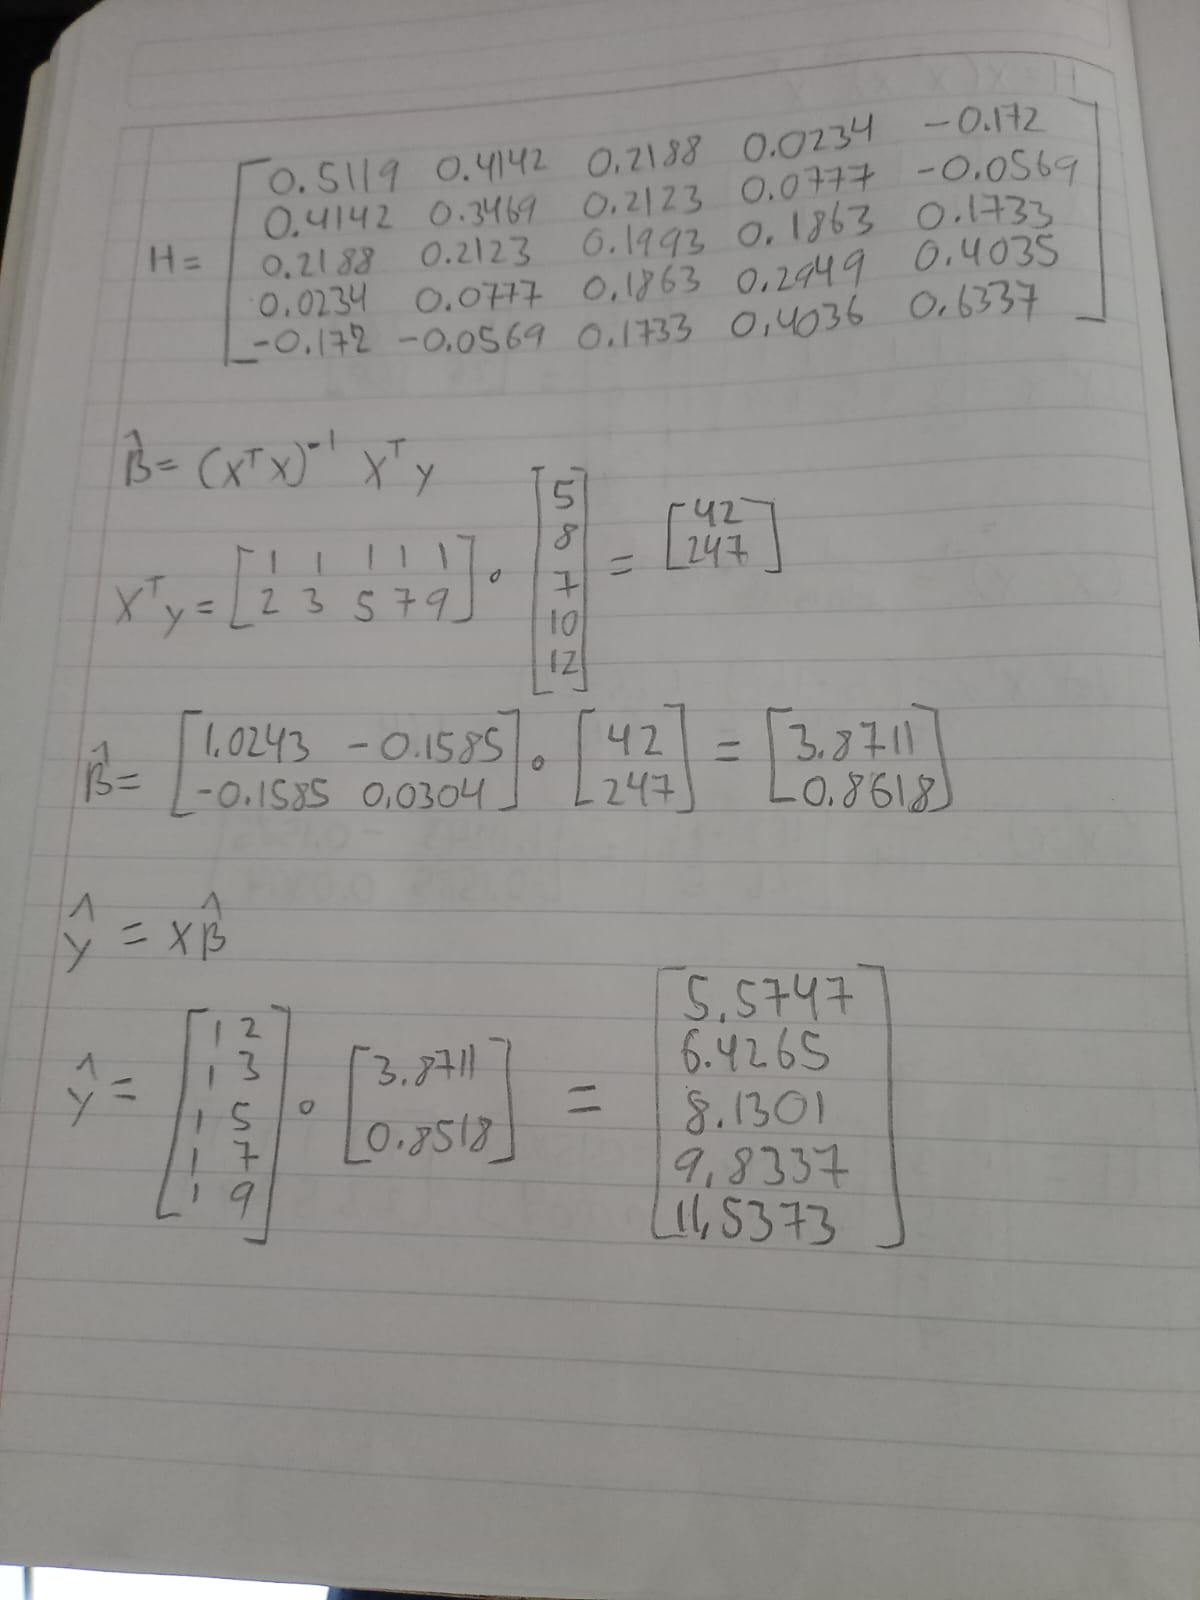 H = [0.5119 0.4142 0.2188 0.0234 -0.172
0.4142 0.3469 0.2123 0.0777 -0.0569
0.2188 0.2123 0.1993 0.1863 0.1733
0.0234 0.0777 0.1863 0.2949 0.4035
-0.172 -0.0569 0.1733 0.4036 0.6337]
β̂ = (XᵀX)⁻¹ Xᵀy
Xᵀy = [1 1 1 1 1
2 3 5 7 9] · [5
8
7
10
12] = [42
247]
β̂ = [1.0243 -0.1585
-0.1585 0.0304] · [42
247] = [3.8711
0.8618]
ŷ = xβ̂
ŷ = [1 2
1 3
1 5
1 7
1 9] · [3.8711
0.8518] = [5.5747
6.4265
8.1301
9,8337
11,5373]